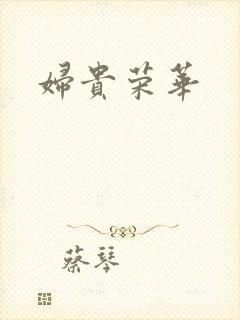 婦貴荣華
蔡琴